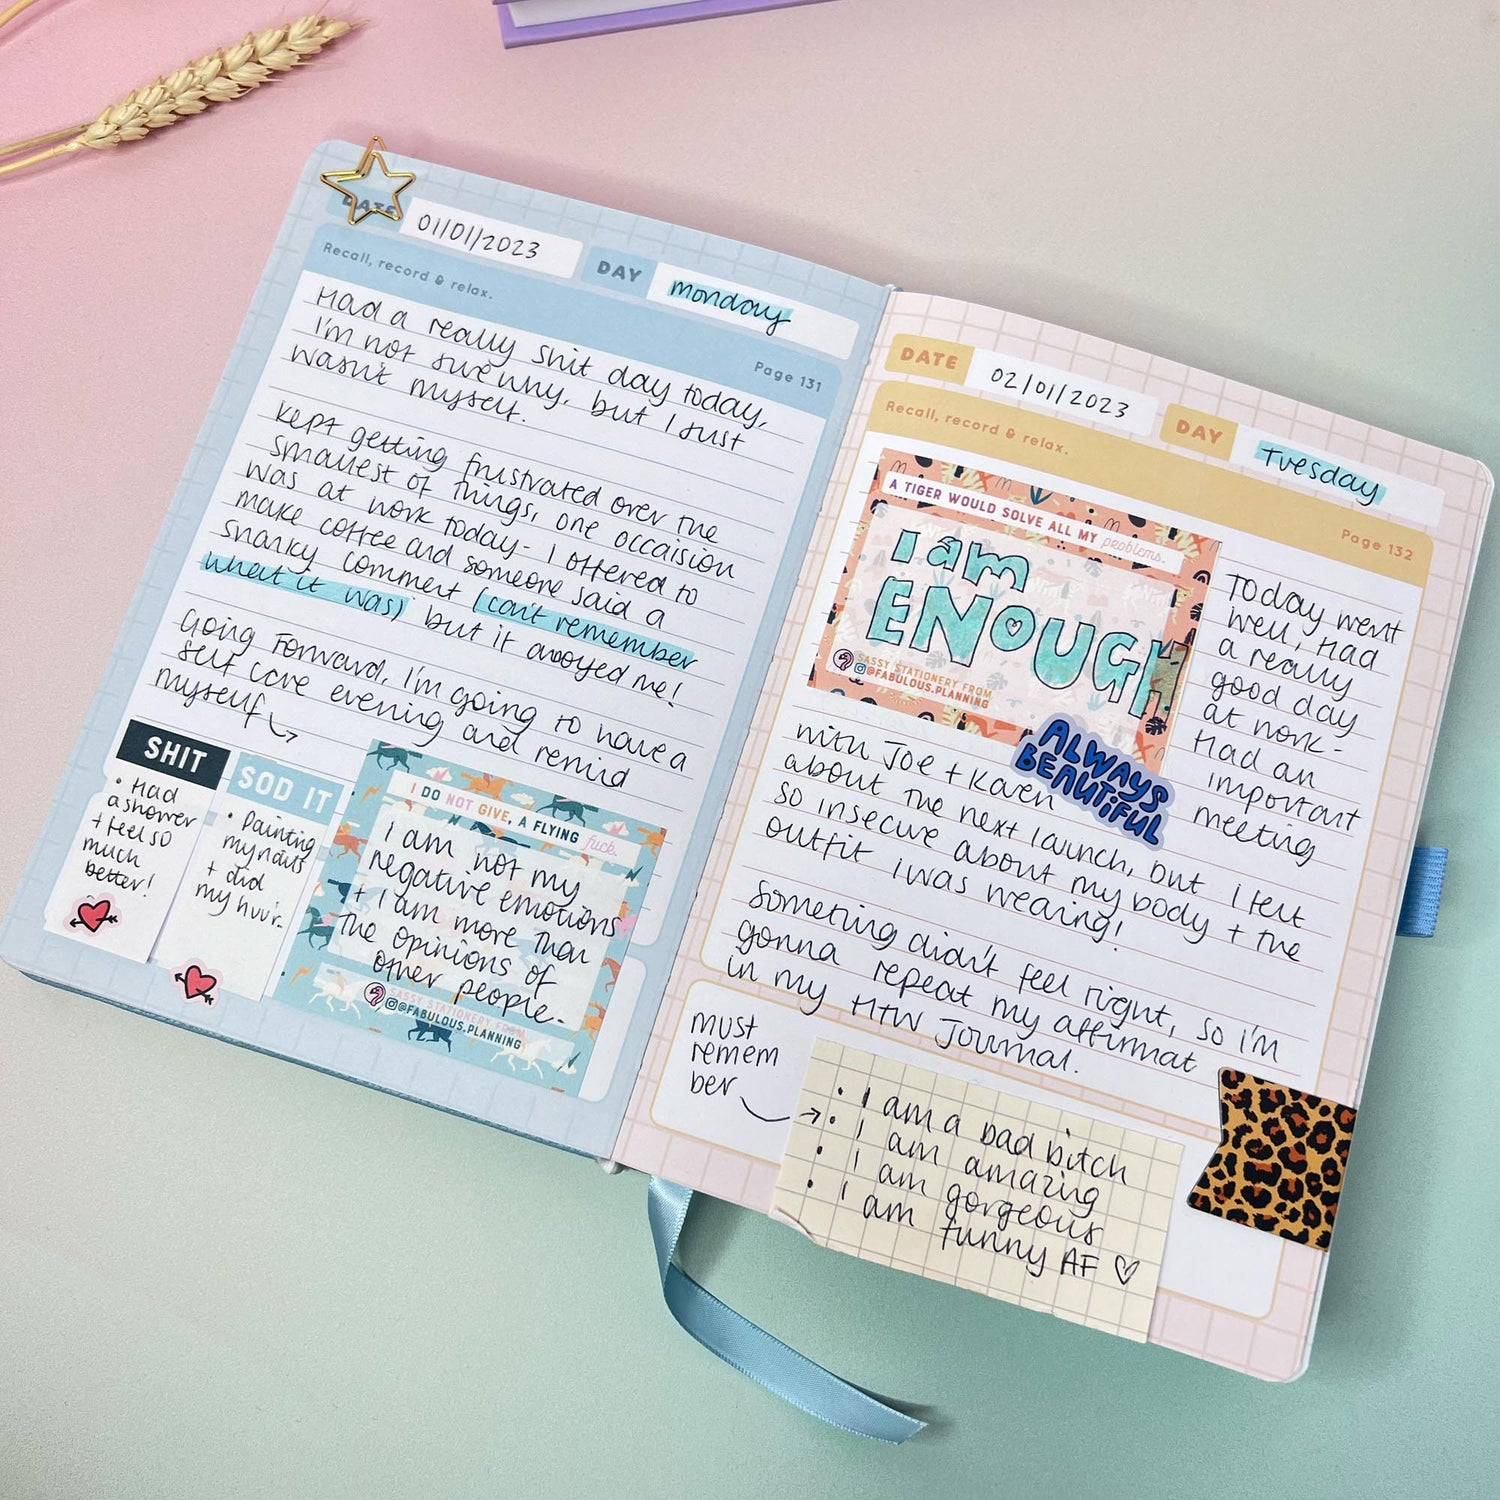 DATE
01/01/2023
DAY
monday
Recall, record & relax.
Page 131
Had a really shit day today,
I'm not sure why, but I just
wasn't myself.
Kept getting frustrated over the
smallest of things, one occaision
was at work today - I offered to
make coffee and someone said a
snarky comment (can't remember
what it was) but it annoyed me!
Going forward, I'm going to have a
self care evening and remind
myself
SHIT
• Had
a shower
+ feel so
much
better!
SOD IT
• Painting
my nails
+ did
my hair.
I DO NOT GIVE, A FLYING fuck.
I am not my
negative emotions
+ I am more than
the opinions of
other people.
SASSY STATIONERY FROM
@FABULOUS.PLANNING
DATE
02/01/2023
DAY
Tuesday
Recall, record & relax.
Page 132
A TIGER WOULD SOLVE ALL MY problems.
I am
ENOUGH
SASSY STATIONERY FROM
@FABULOUS.PLANNING
ALWAYS
BEAUTIFUL
Today went
well, Had
a really
good day
at work -
Had an
important
meeting
with Joe + Karen
about the next launch, but I felt
so insecure about my body + the
outfit I was wearing!
Something didn't feel right, so I'm
gonna repeat my affirmat
in my HTW Journal.
must
remem
ber
• I am a bad bitch
→ • I am amazing
• I am gorgeous
• I am funny AF ♡